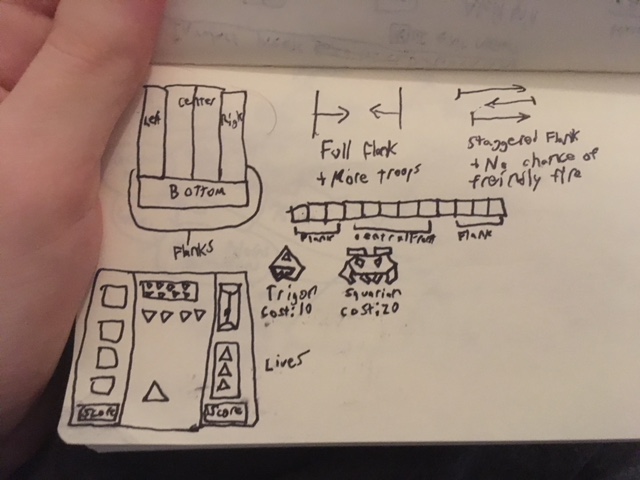 Left
Center
Right
Bottom
Flanks
Full Flank
+ More troops
Staggered Flank
+ No chance of
freindly fire
Flank
central Front
Flank
Trigon
cost:10
Squarian
cost:20
Lives
Score
Score